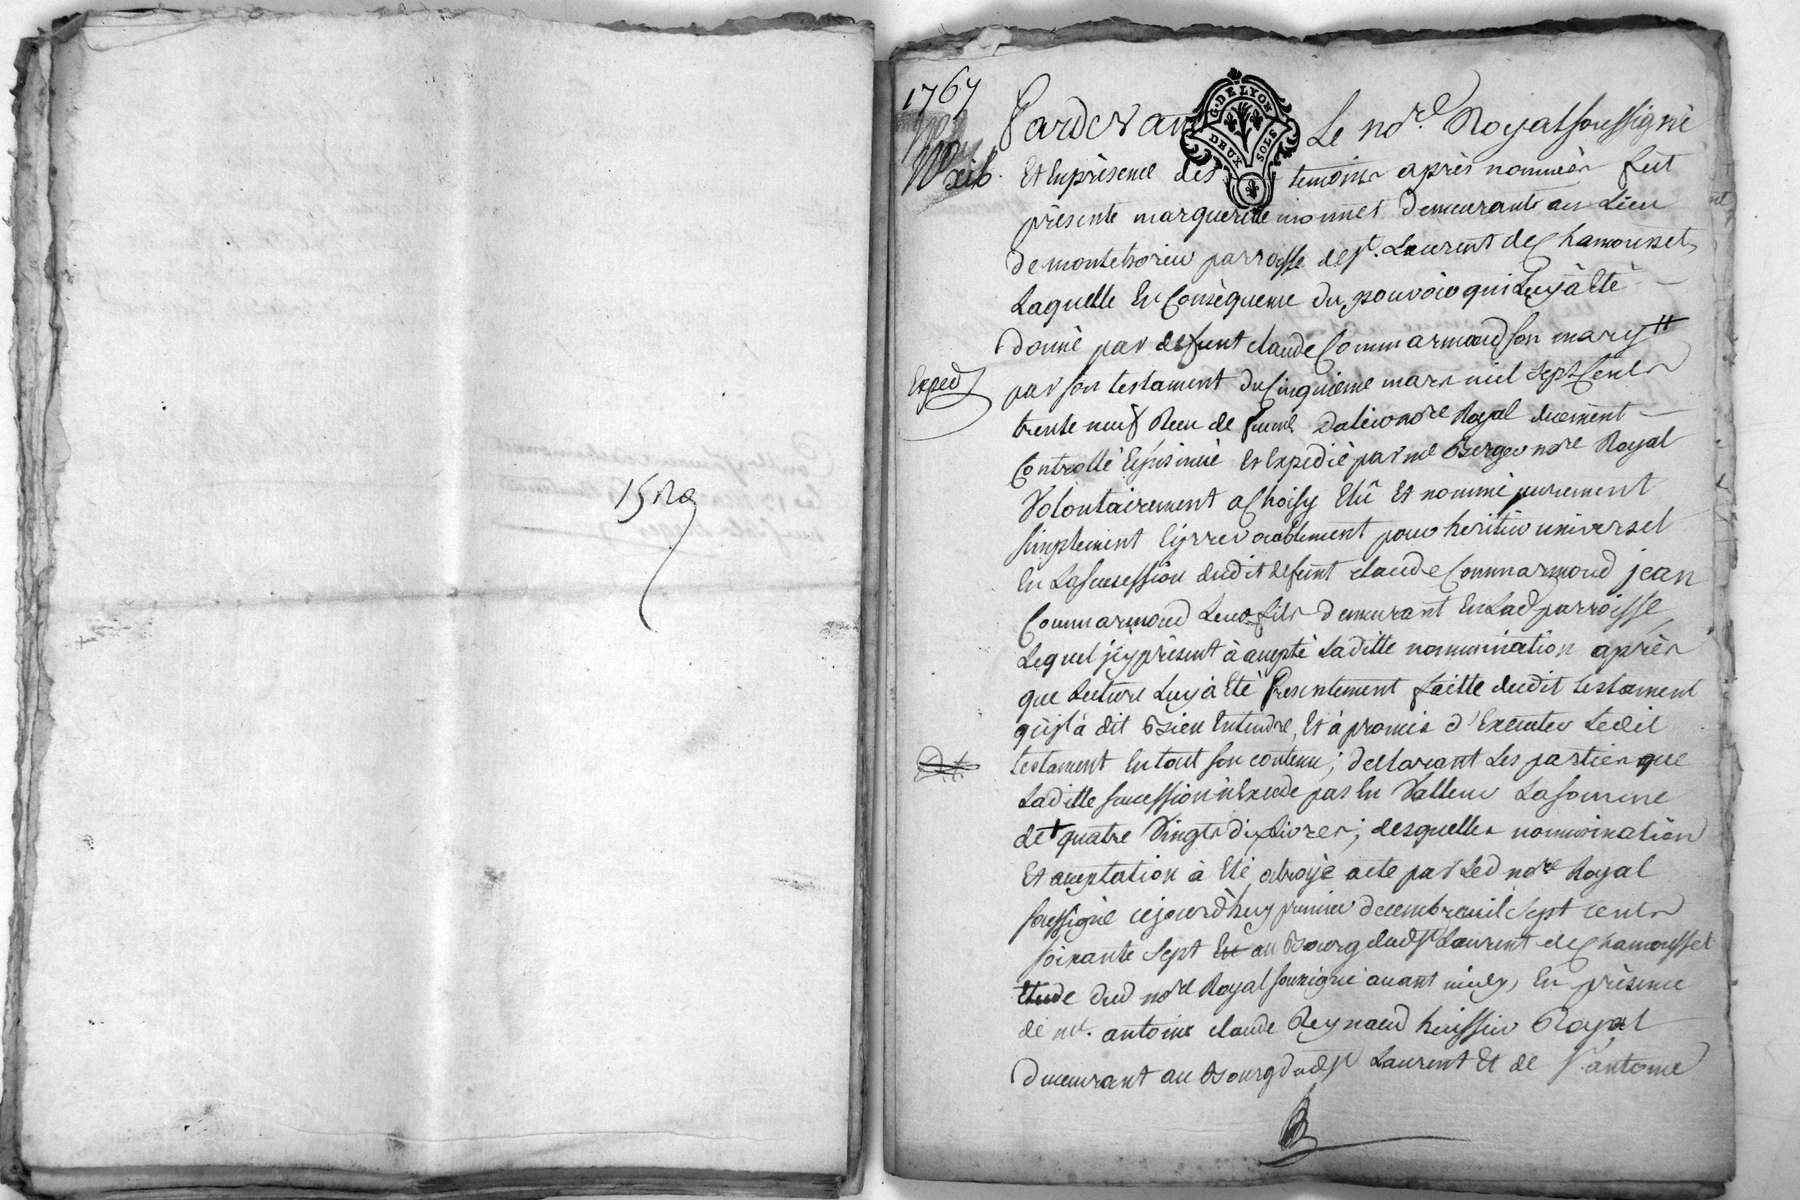 15 Xbre
1767
Xbre
Pardevant Le nore. Royal soussigné
G. DE LYON
DEUX SOLS
Et En présence des temoins après nommés fut
présente marguerite monnet demeurante au Lieu
de montchorieu parroisse de st. Laurent de Chamousset,
Laquelle En Conséquence du pouvoir qui Luy à été
donné par defunt claude Commarmond son mary #
Exped
par son testament du Cinquieme mars mil sept Cents
trente neuf Receu de nore Royal duement
Controllé Et insinué et Expedié par me Berger nore Royal
Volontairement a Choisy Elû Et nommé purement
simplement Et irrevocablement pour heritier universel
En La succession dudit defunt claude Commarmond jean
Commarmond Leur fils demeurant En Lad parroisse
Lequel icy présent à accepté Laditte nommination après
que Lecture Luy à été Presentement faitte dudit testament
qu'jl à dit Bien Entendre, Et à promis d'Executer Ledit
testament En tout son contenu; declarant Les parties que
Laditte succession n'Excede pas En Valleur La somme
de + quatre Vingts dix Livres; desquelles nommination
Et acceptation à été octroyé acte par Led nore Royal
soussigné cejourd'huy premier decembre mil sept cents
soixante sept En au Bourg dud st Laurent de Chamousset
Etude dud nore Royal soussigné avant midy, En présence
de me. antoine claude Reynaud huissier Royal
demeurant au Bourg dud st Laurent Et de sr antoine